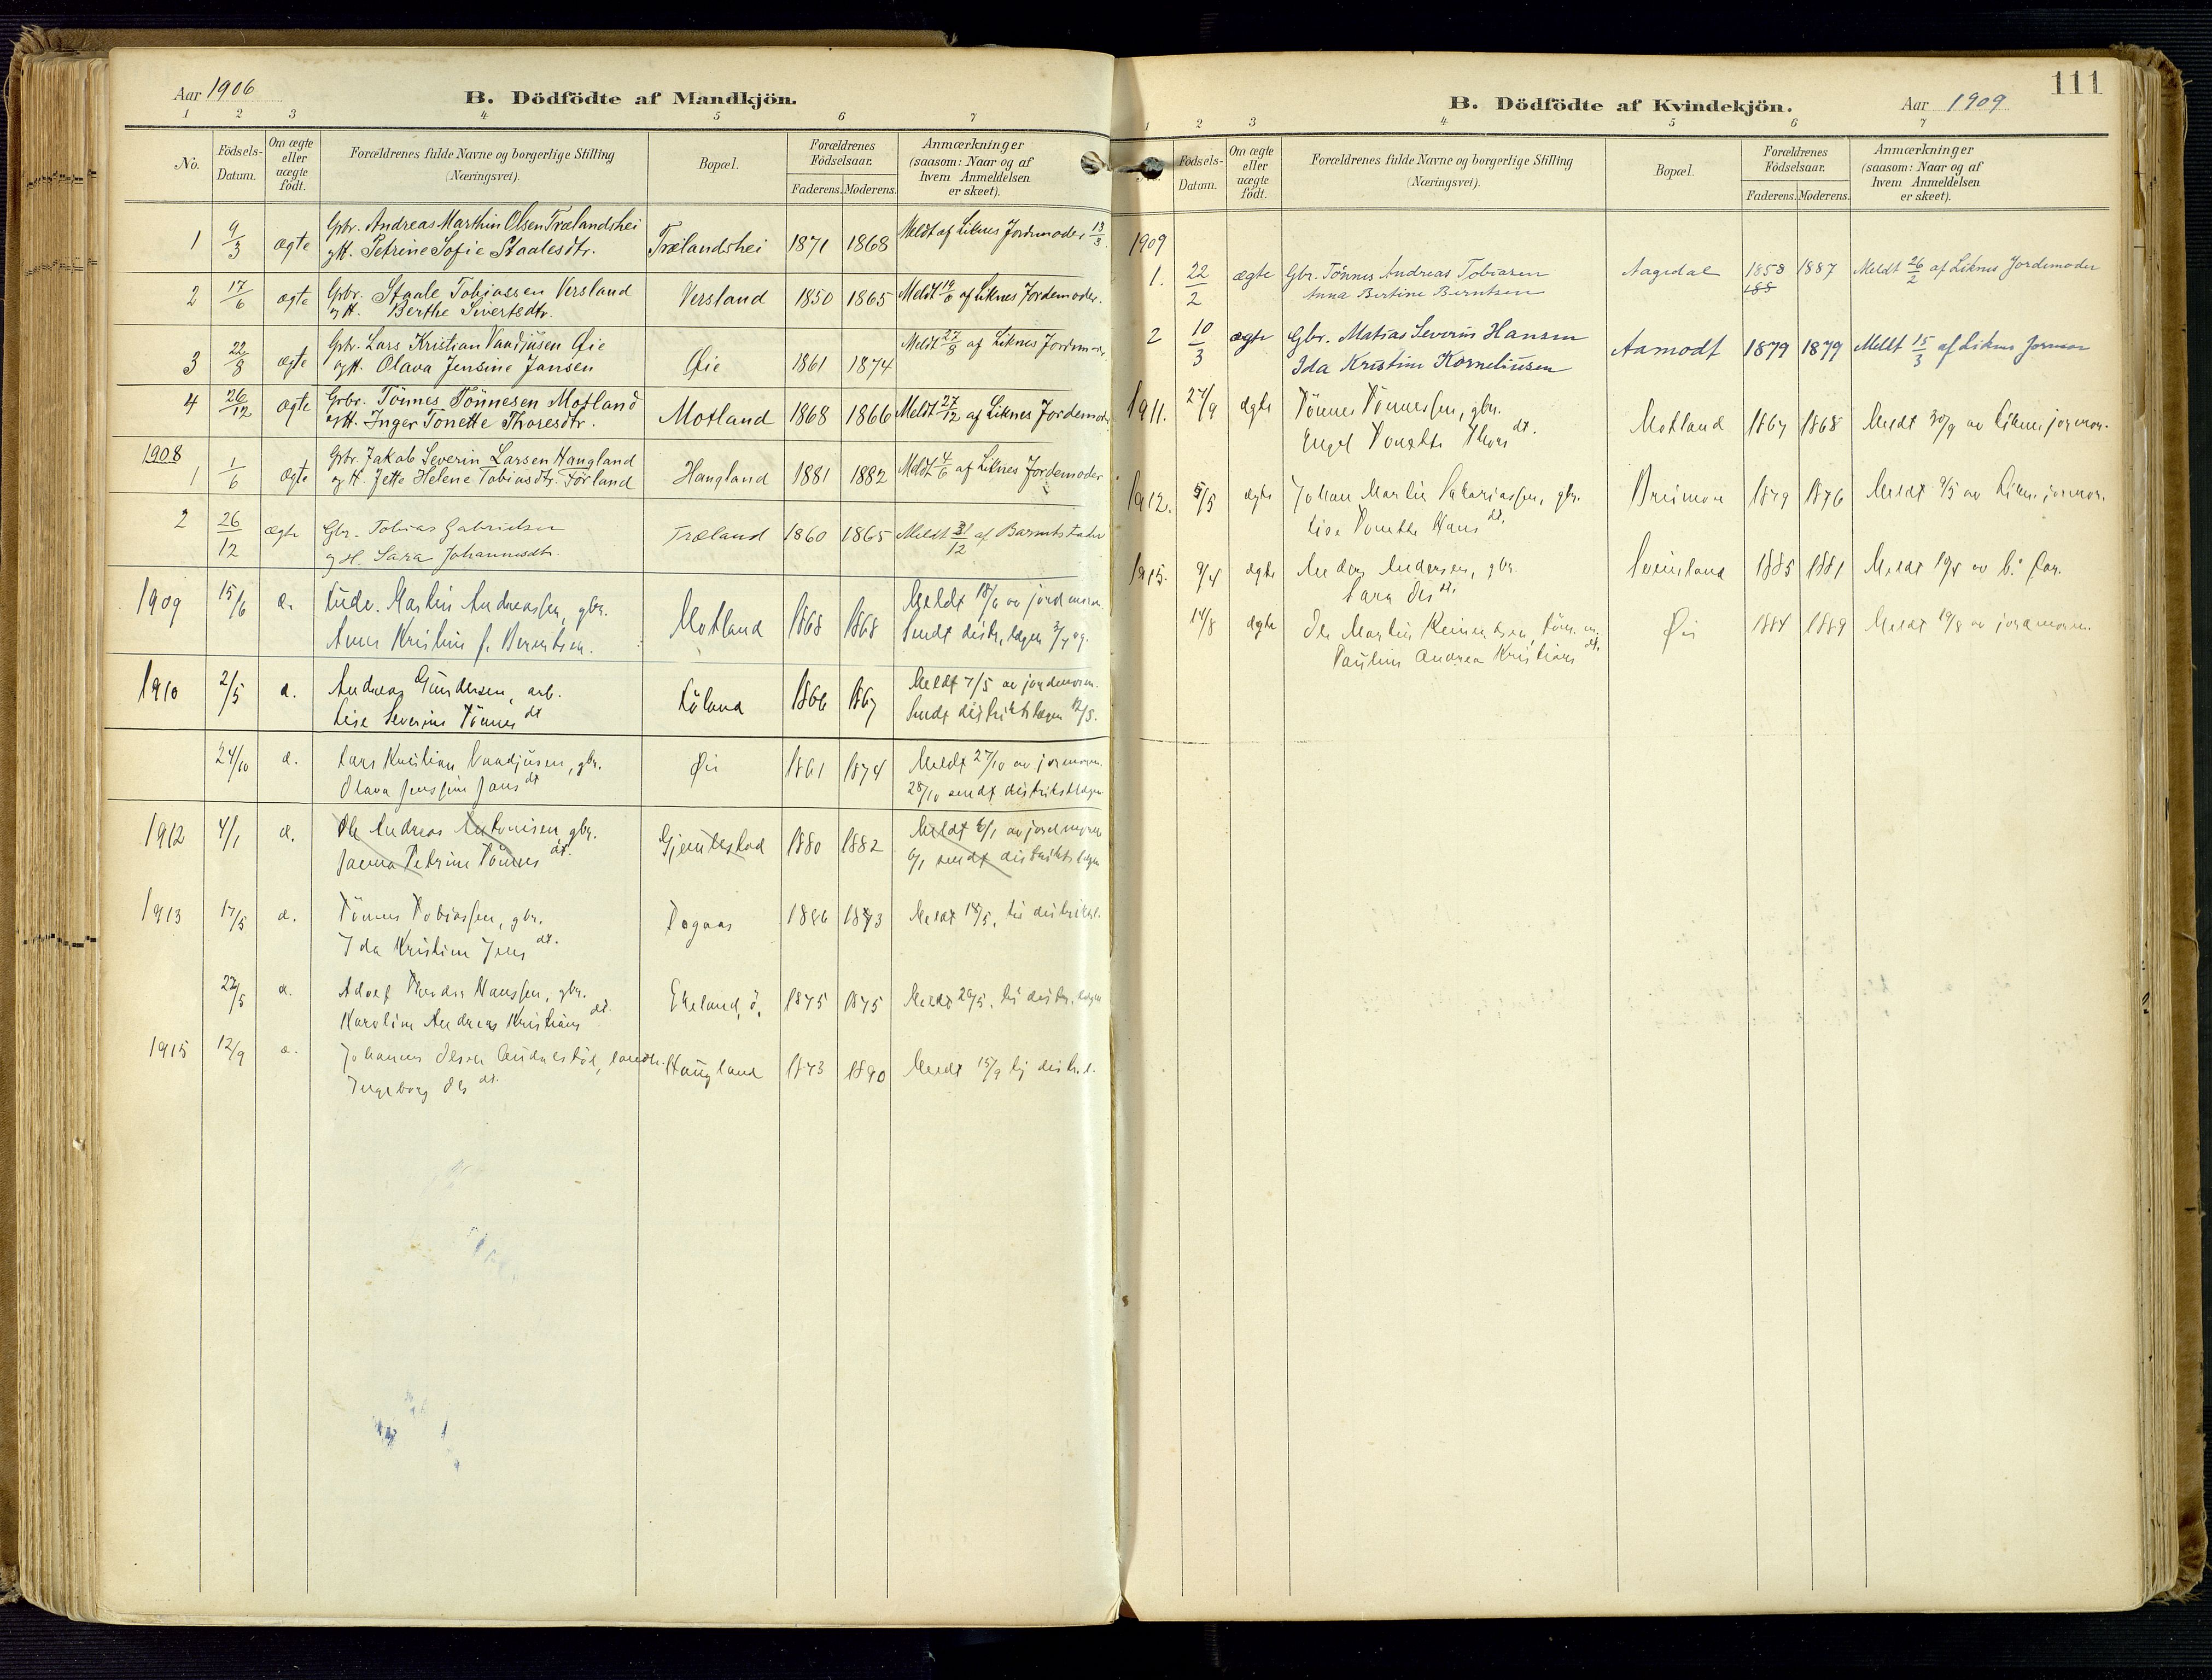 Aar 1906
B. Dödfödte af Mandkjön.
1 2 3 4 5 6 7
No.
Födsels-Datum.
Om ægte eller uægte födt.
Forældrenes fulde Navne og borgerlige Stilling (Næringsvei).
Bopæl.
Forældrenes Födselsaar.
Faderens. Moderens.
Anmærkninger (saasom: Naar og af hvem Anmeldelsen er skeet).
1 9/3 ægte Gbr. Andreas Marthin Olsen Trælandshei Trælandshei 1871 1868 Meldt af Liknes Jordemoder 13/3.
og H. Petrine Sofie Staalesdtr.
2 17/6 ægte Gbr. Staale Tobiassen Versland Versland 1850 1865 Meldt af Liknes Jordemoder.
og H. Berthe Sivertsdtr.
3 22/8 ægte Gbr. Lars Kristian Vaadjusen Øie Øie 1861 1874 Meldt 27/8 af Liknes
og H. Olava Jensine Jansen
4 26/12 ægte Gbr. Tönnes Tönnesen Motland Motland 1868 1866 Meldt 27/12 af Liknes
og H. Inger Tonette Thoresdtr.
1908
1 1/6 ægte Gbr. Jakob Severin Larsen Haugland Haugland 1881 1882 Meldt 4/6 af Liknes Jordemoder
og H. Jette Helene Tobiasdtr. Förland
2 26/12 ægte Gbr. Tobias Gabrielsen Træland 1860 1865 Meldt 31/12 af Barnets fader
og H. Sara Johannesdtr.
1909 15/6 æ. Ludv. Martin Andreassen, gbr. Motland 1868 1868 Meldt 18/6 av jordmoren.
Anne Kristine f. Berentsen. Sendt distr. lægen
1910 2/5 æ. Andreas Gundersen, arb. 1866 1867 Meldt 7/5 av jordmoren.
Lise Severine Tönnesdt Sendt distriktslægen 12/5.
24/10 æ. Lars Kristian Vaadjusen, gbr. Øie 1861 1874 Meldt 27/10 av jormoren.
Olava Jensine Jansdt 28/10 sendt distriktslægen
1912 4/1 æ. Ole Andreas Antonisen, gbr. Gjemlestad 1880 1882 Meldt 6/1 av jordmoren
Janna Petrine Tönnesdt. 6/1 sendt distriktslægen
1913 17/5 æ. Tönnes Tobiassen, gbr. 1886 Meldt 18/5, til
Ida Kristine Jensdt.
22/5 æ. Adolf Hanssen, gbr. Ekeland, ö. 1875 1875 Meldt 26/5, til distr. lægen
Karoline Andrea Kristiansdt.
1915 12/9 æ. Johannes Olsen Haugland 1873 1890 Meldt 15/9 til distr. l.
Ingeborg Olsdt.
111
B. Dödfödte af Kvindekjön.
Aar 1909
1 2 3 4 5 6 7
Födsels-Datum.
Om ægte eller uægte födt.
Forældrenes fulde Navne og borgerlige Stilling (Næringsvei).
Bopæl.
Forældrenes Födselsaar.
Faderens. Moderens.
Anmærkninger (saasom: Naar og af hvem Anmeldelsen er skeet).
1909
1. 22/2 ægte Gbr. Tönnes Andreas Tobiasen Aagedal 1858 1887 Meldt 26/2 af Liknes Jordemoder
Anna Bertine Berntsen 188
2 10/3 ægte Gbr. Matias Severin Hansen Aamodt 1879 1879 Meldt 15/3 af Liknes Jormor
Ida Kristine Korneliusen
1911. 27/9 ægte Tönnes Tönnessen, gbr. Motland 1867 1868 Meldt 30/9 av Liknes jormor.
Engel Tonette Thorsdt.
1912. 5/5 ægte Johan Martin Sakariassen, gbr. Breimoen 1879 1876 Meldt 9/5 av Liknes jormor.
Lise Tonette Hansdt.
1915. 9/4 ægte Anders Andersen, gbr. Sveinsland 1885 1881 Meldt av b. far.
Sara Olsdt.
14/8 ægte Ole Martin Reinertsen, Øie 1884 1889 Meldt 19/8 av jordmoren.
Pauline Andrea Kristiansdt.